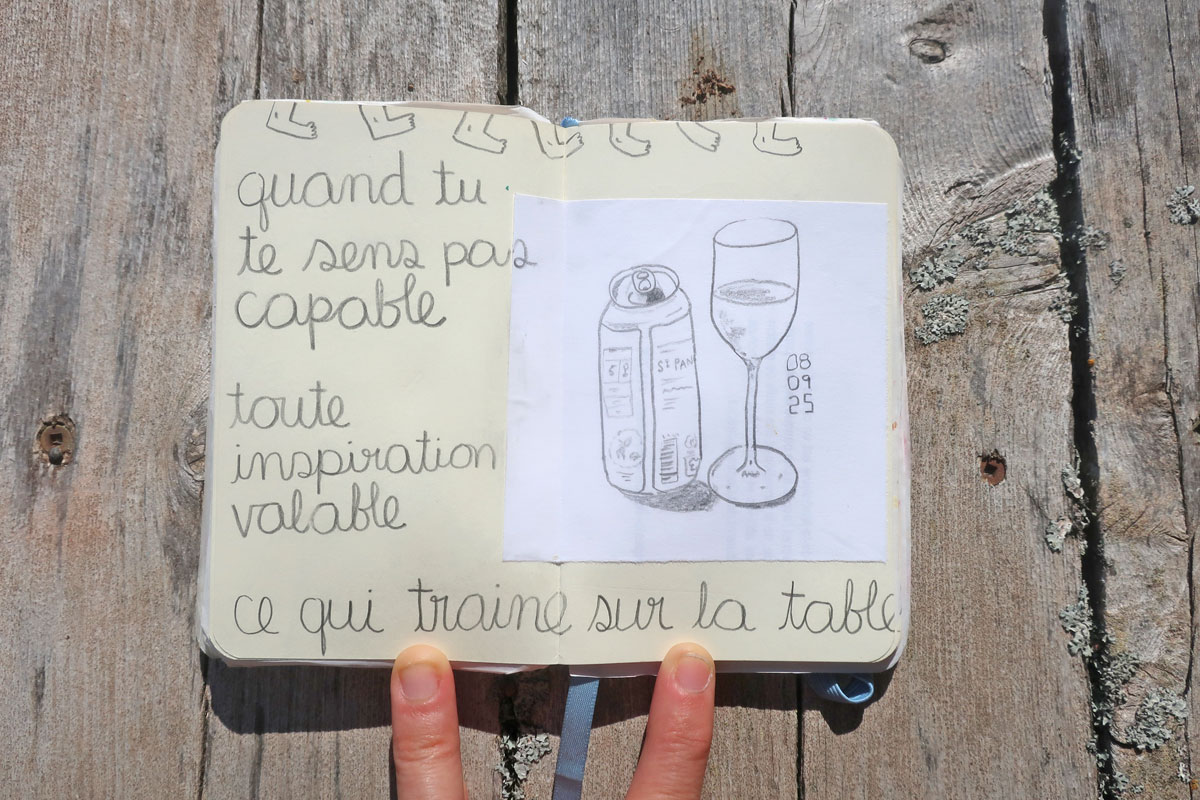 quand tu
te sens pas
capable
toute
inspiration
valable
St PAN
08
09
25
ce qui traine sur la table